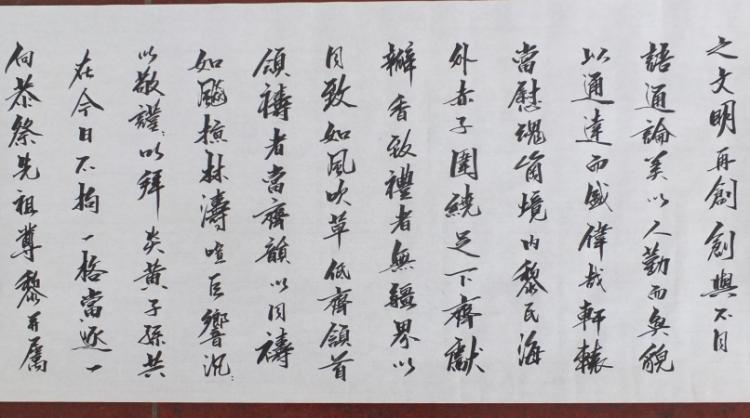 之文明再創創與不同
語通論美以人勤而奐貌
以通達而盛偉哉軒轅
當慰魂崗境內黎民海
外赤子圍繞足下齊獻
辦香致禮者無疆界以
同致如風吹草低齊領首
頌禱者當齊韻以同禱
如飈掠林濤喧巨響汎
以敬謹以拜炎黃子孫共
在今日不拘一格當逐一
向恭祭先祖尊黎并屬